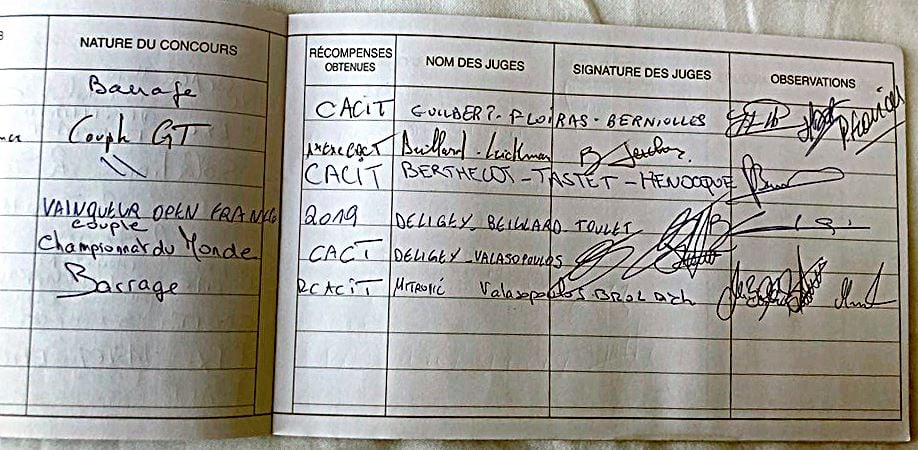 NATURE DU CONCOURS
Barrage
Couple GT
\\
VAINQUEUR OPEN FRANCE
couple
Championnat du Monde
Barrage
RÉCOMPENSES OBTENUES
NOM DES JUGES
SIGNATURE DES JUGES
OBSERVATIONS
CACIT GUILBERT - FLOIRAS - BERNIOLLES
CACIT BERTHELOT - TASTET - HENOCQUE
2019 DELIGEY BEILLARD TOULET
CACT DELIGEY - VALASOPOULOS
RCACIT MITROVIĆ Valasopoulos